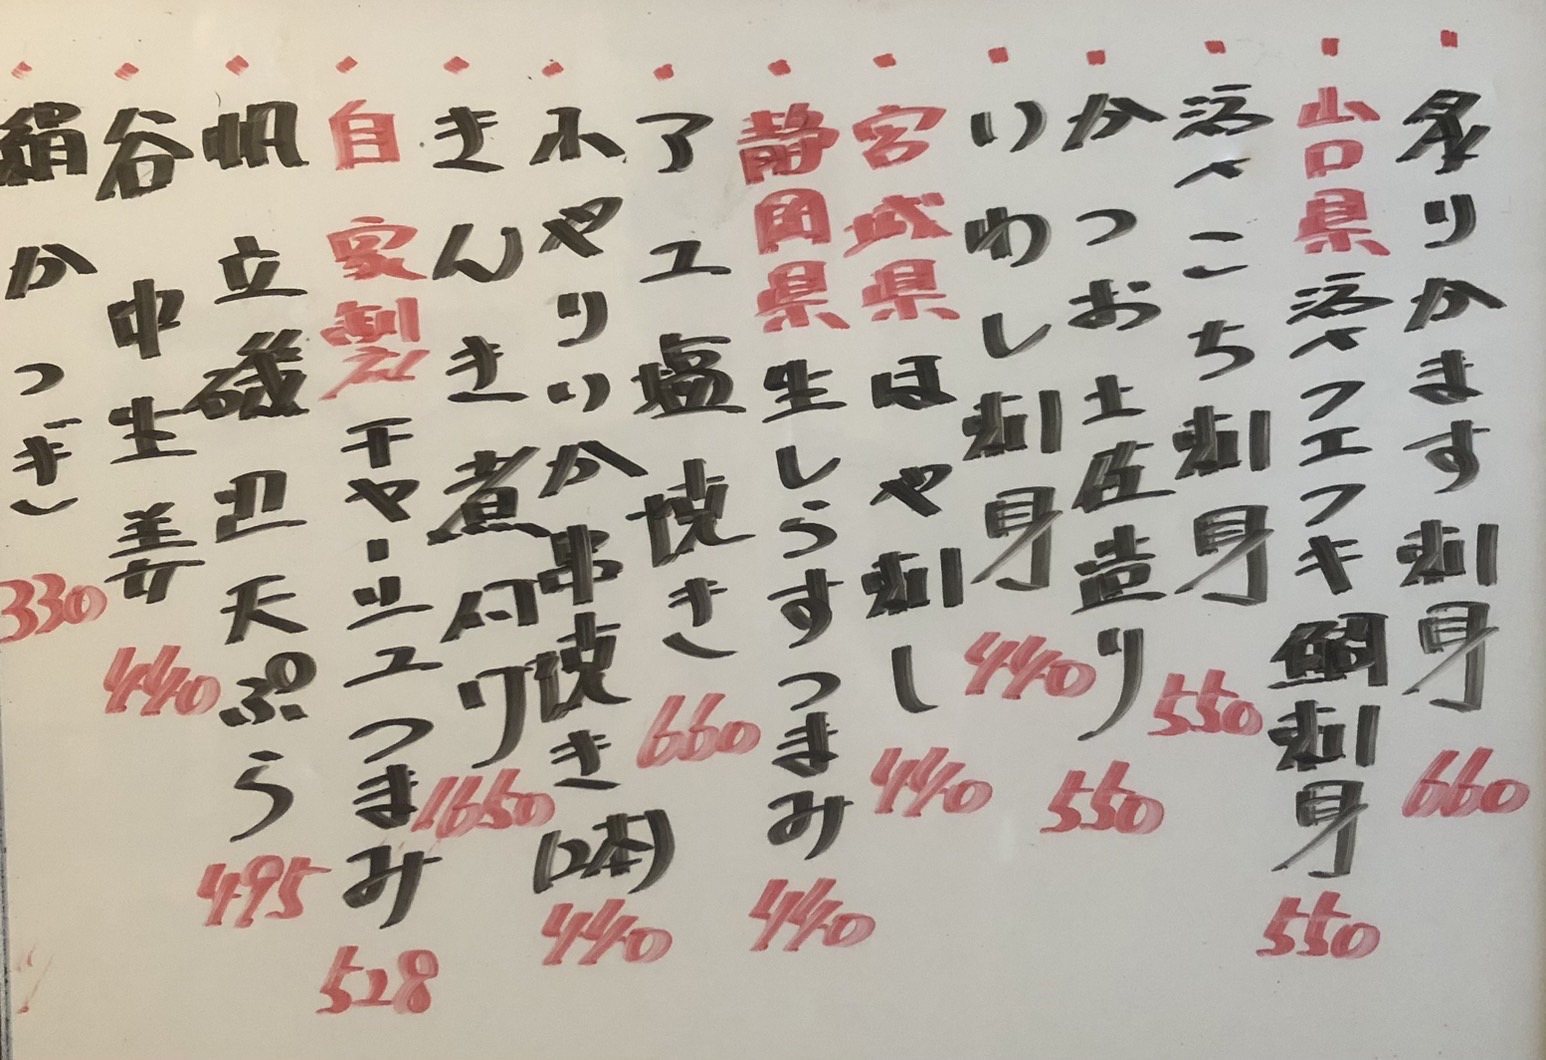 炙りかます刺身 660
山口県活〆フエフキ鯛刺身 550
活〆こち刺身 550
かつお土佐造り 550
いわし刺身 440
宮城県ほや刺し 440
静岡県生しらすつまみ 440
アユ塩焼き 660
小やりいか串焼き(2本) 440
きんき煮付け 1650
自家製チャーシューつまみ 528
帆立磯辺天ぷら 495
谷中生姜 440
絹かつぎ 330